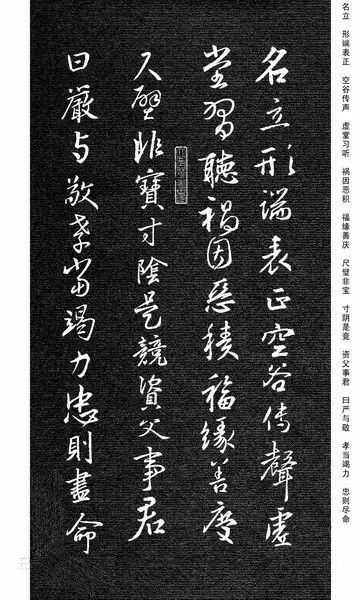 名立 形端表正 空谷传声 虚堂习听 祸因恶积 福缘善庆 尺璧非宝 寸阴是竞 资父事君 曰严与敬 孝当竭力 忠则尽命
名立形端表正空谷传聲虛
堂習聽禍因惡積福緣善慶
尺璧非寶寸陰是競資父事君
曰嚴与敬孝當竭力忠則盡命